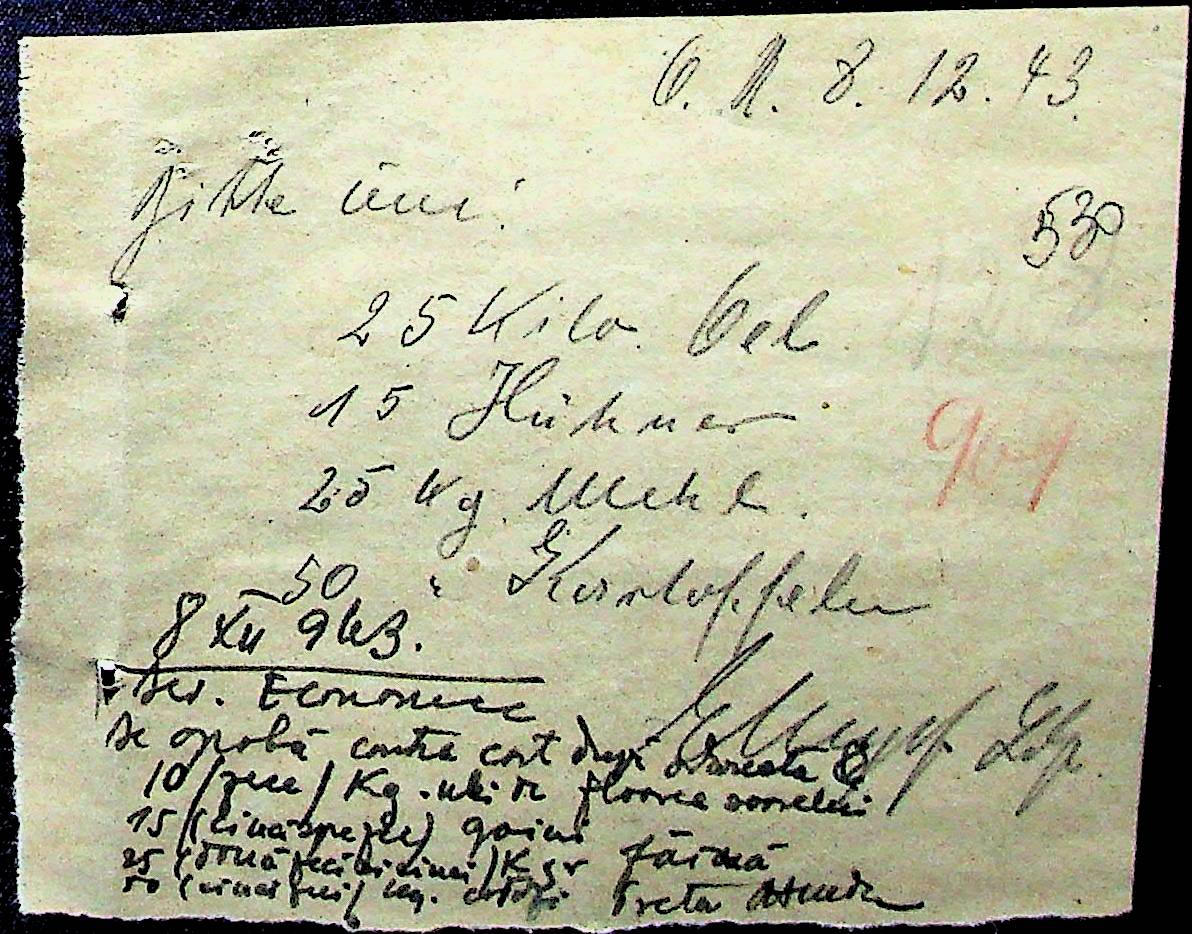 O. U. 8. 12. 43.
Bitte um:
530
25 Kilo Oel.
15 Hühner
25 Kg. Mehl.
50 " Kartoffeln
8 XII 943.
Ser. Economic
Se aprobă contra cost după
10 /zece/ Kg. ulei de floarea soarelui
15 (cincisprezece) găini
25 (două zeci și cinci) Kgr făină
50 (cinci zeci) kg. cartofi